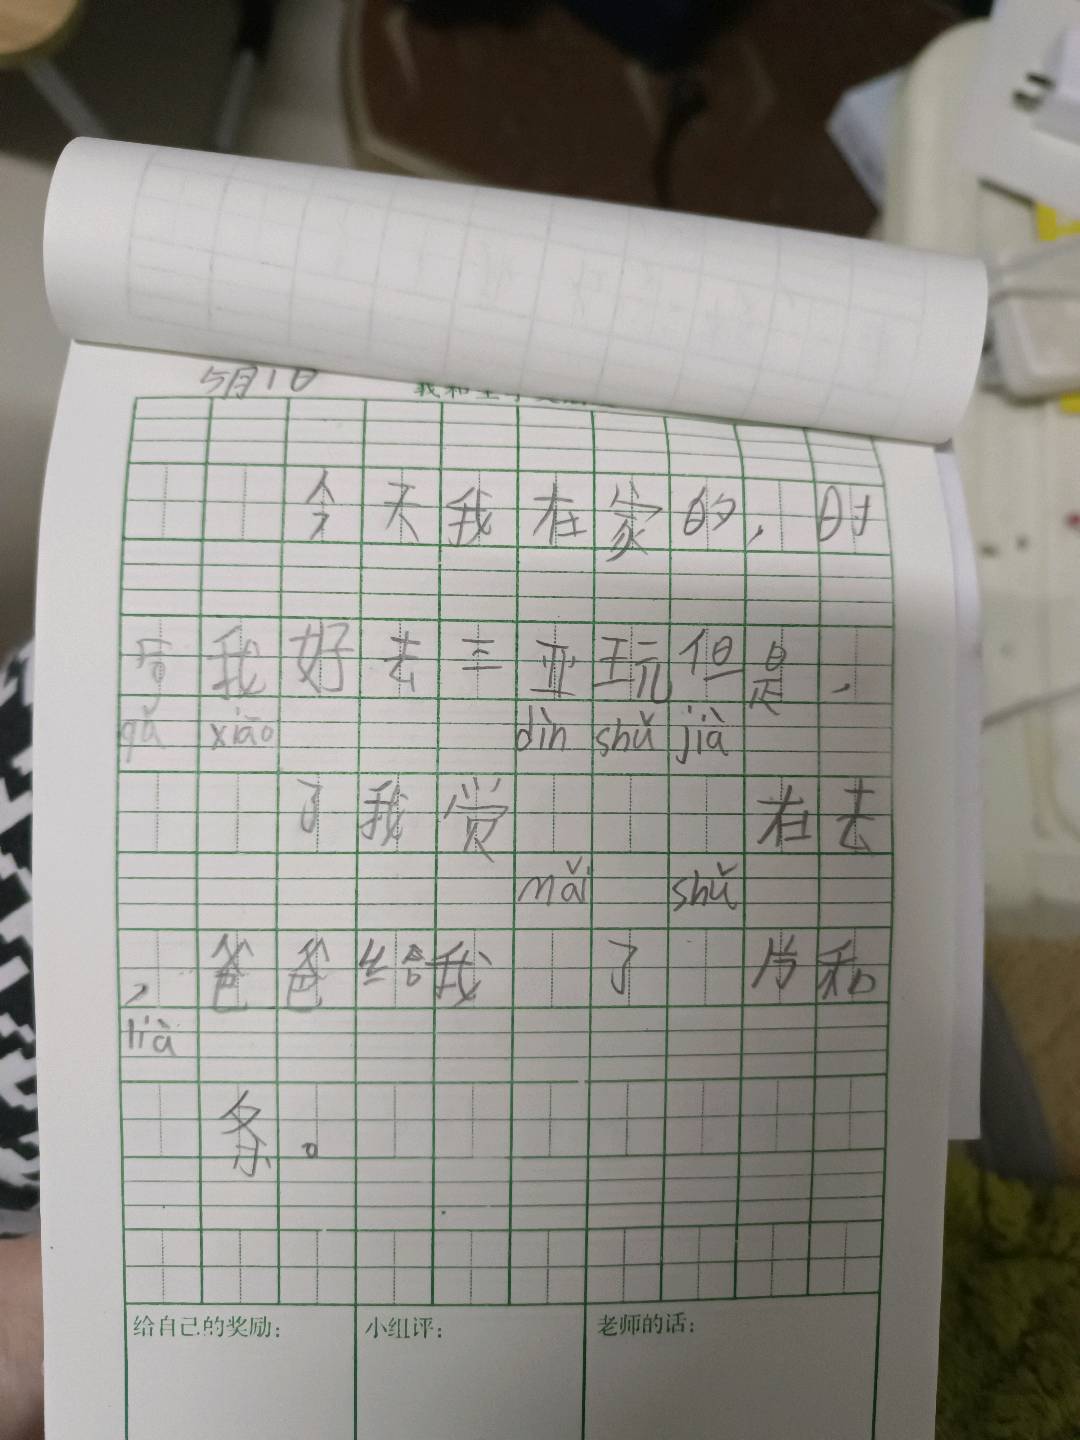 5月1日
今天我在家的，时
我好去三亚玩但是，
qǔ xiāo dìn shǔ jià
了我觉 在去
mǎi shǔ
，爸爸给我 了 片和
lià
条。
给自己的奖励： 小组评： 老师的话：